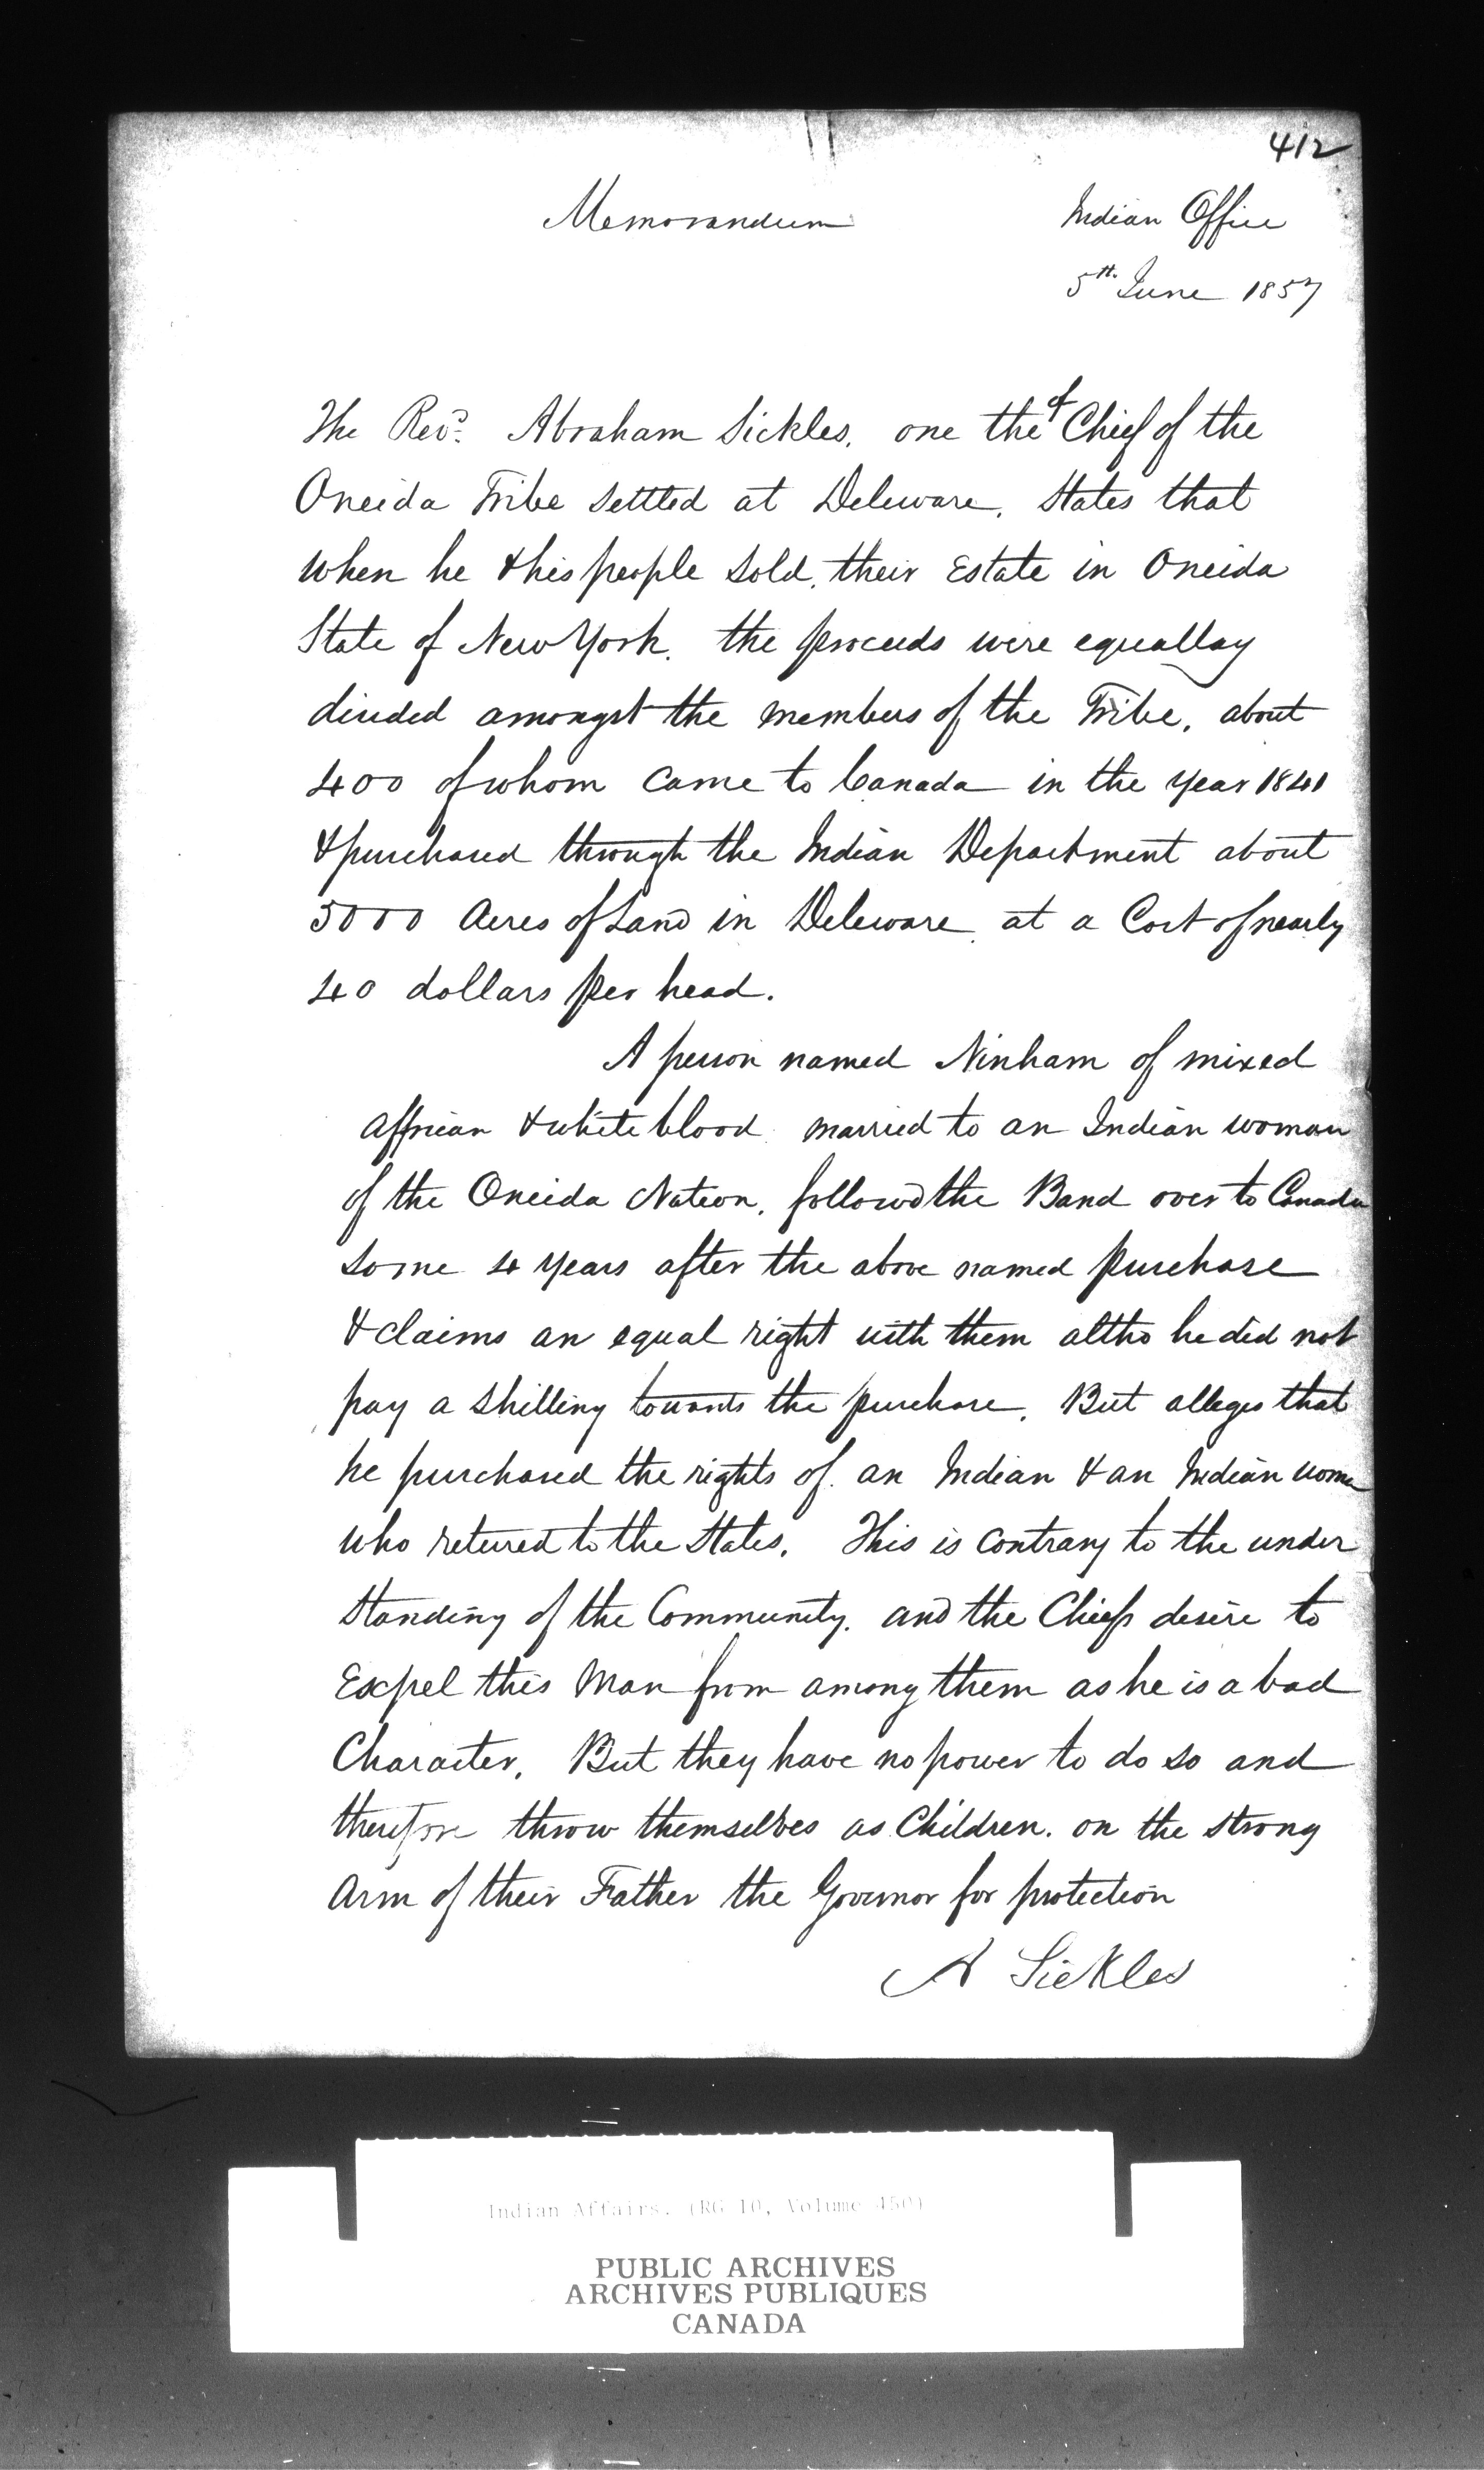 412
Memorandum
Indian Office
5th June 1857
The Revd. Abraham Sickles, one the of Chief of the
Oneida Tribe settled at Deleware. States that
when he & his people sold, their Estate in Oneida
State of New York. the proceeds were equallay
divided amongst the members of the Tribe, about
400 of whom came to Canada in the year 1840
& purchased through the Indian Department about
5000 Acres of Land in Deleware at a Cost of nearly
40 dollars per head.
A person named Ninham of mixed
affrican & white blood married to an Indian woman
of the Oneida Nation, followd the Band over to Canada
some 4 years after the above named purchase
& claims an equal right with them altho he did not
pay a shilling towards the purchase. But alleges that
he purchased the rights of an Indian & an Indian woman
who retured to the States. This is contrary to the under
standing of the Community. and the Chiefs desire to
Expel this man from among them as he is a bad
Character. But they have no power to do so and
therefore throw themselves as Children. on the strong
arm of their Father the Governor for protection
A Sickles
Indian Affairs. (RG 10, Volume 450)
PUBLIC ARCHIVES
ARCHIVES PUBLIQUES
CANADA